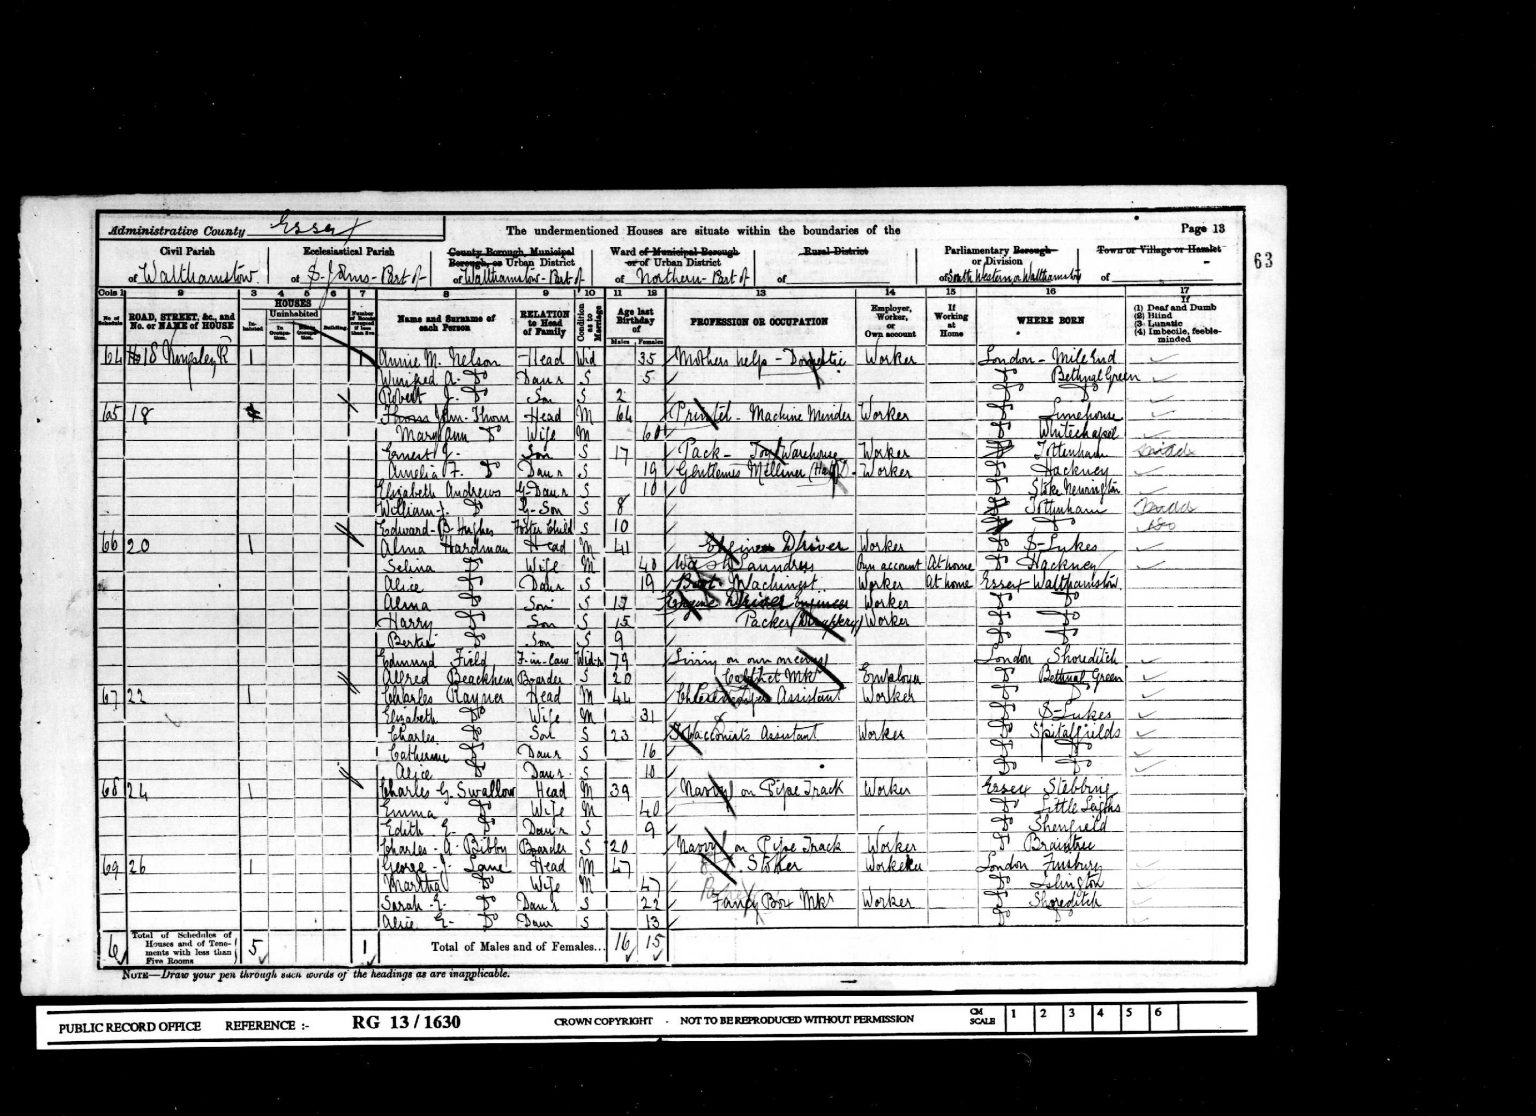 Administrative County Essex
The undermentioned Houses are situate within the boundaries of the
Page 13
63
Civil Parish of Walthamstow
Ecclesiastical Parish of St Johns - Part of
County Borough, Municipal Borough, or Urban District of Walthamstow - Part of
Ward of Municipal Borough or of Urban District of Northern - Part of
Rural District of
Parliamentary Borough or Division of South Western or Walthamstow
Town or Village or Hamlet of
Cols 1 2 3 4 5 6 7 8 9 10 11 12 13 14 15 16 17
No. of Schedule
ROAD, STREET, &c., and No. or NAME of HOUSE
HOUSES
Inhabited
Uninhabited
In Occupation.
Not in Occupation.
Building.
Number of Rooms occupied if less than five
Name and Surname of each Person
RELATION to Head of Family
Condition as to Marriage
Age last Birthday of
Males Females
PROFESSION OR OCCUPATION
Employer, Worker, or Own account
If Working at Home
WHERE BORN
If (1) Deaf and Dumb (2) Blind (3) Lunatic (4) Imbecile, feeble-minded
64 18 Kingsley Rd 1 1 Annie M. Nelson Head Wid 35 Mothers help - Domestic Worker London - Mile End
Winifred A. Do Daur S 5 Do Bethnal Green
Robert J. Do Son S 2 Do Do
65 18 Thom Head M 64 Machine Minder Worker Do Limehouse
Mary Ann Do Wife M 60 Do Whitechapel
Ernest J. Son S 17 Pack - Toy Warehouse Worker Tottenham
Amelia F. Do Daur S 19 Gentlemens Milliner (Hat) Worker Do Hackney
Elizabeth Andrews G-Daur S 10 Do Stoke Newington
William J. Do G-Son S 8 Tottenham
Edward B. Hughes Foster Child S 10 Do
66 20 1 Alma Hardman Head M 41 Engine Driver Worker Do St Lukes
Selina Do Wife M 40 Wash Laundry Own account At home Do Hackney
Alice Do Daur S 19 Machinest Worker At home Essex - Walthamstow
Alma Do Son S 17 Engine Driver Worker Do Do
Harry Do Son S 15 Packer (Drapery) Worker Do Do
Bertie Do Son S 9 Do Do
Edmund Field F-in-law Widr 79 Living on own means London Shoreditch
Alfred Beackham Boarder S 20 Cabinet Mkr Employer Do Bethnal Green
67 22 1 Charles Rayner Head M 44 Assistant Worker Do Do
Elizabeth Do Wife M 31 Do St Lukes
Charles Do Son S 23 Tobacconists Assistant Worker Do Spitalfields
Catherine Do Daur S 16 Do Do
Alice Do Daur S 10 Do Do
68 24 1 Charles G. Swallow Head M 39 Navvy on Pipe Track Worker Essex Stebbing
Emma Do Wife M 40 Do Little Leighs
Edith E. Do Daur S 9 Do Shenfield
Charles A. Bibby Boarder S 20 Navvy on Pipe Track Worker Do Braintree
69 26 1 George J. Lane Head M 47 Stoker Worker London Finsbury
Martha Do Wife M 47 Do Islington
Sarah E. Do Daur S 22 Fancy Box Mkr Worker Do Shoreditch
Alice E. Do Daur S 13 Do Do
6 Total of Schedules of Houses and of Tenements with less than Five Rooms 5 1 Total of Males and of Females... 16 15
NOTE—Draw your pen through such words of the headings as are inapplicable.
PUBLIC RECORD OFFICE REFERENCE :- RG 13 / 1630 CROWN COPYRIGHT - NOT TO BE REPRODUCED WITHOUT PERMISSION CM SCALE 1 2 3 4 5 6